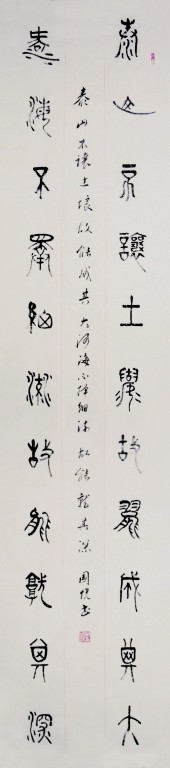 泰山不讓土壤故能成其大
泰山不讓土壤故能成其大河海不擇細流故能就其深
河海不擇細流故能就其深